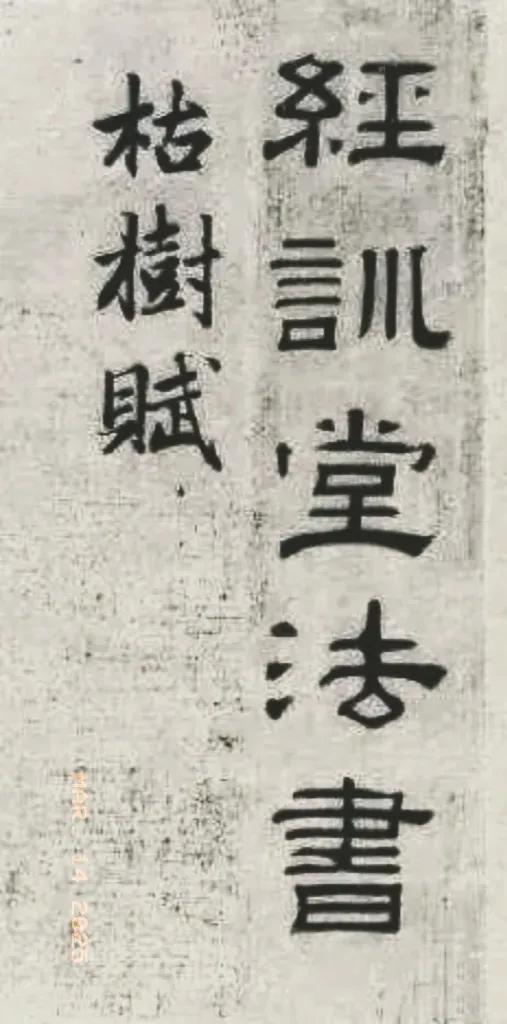 經訓堂法書
枯樹賦
MAR. 14 2025